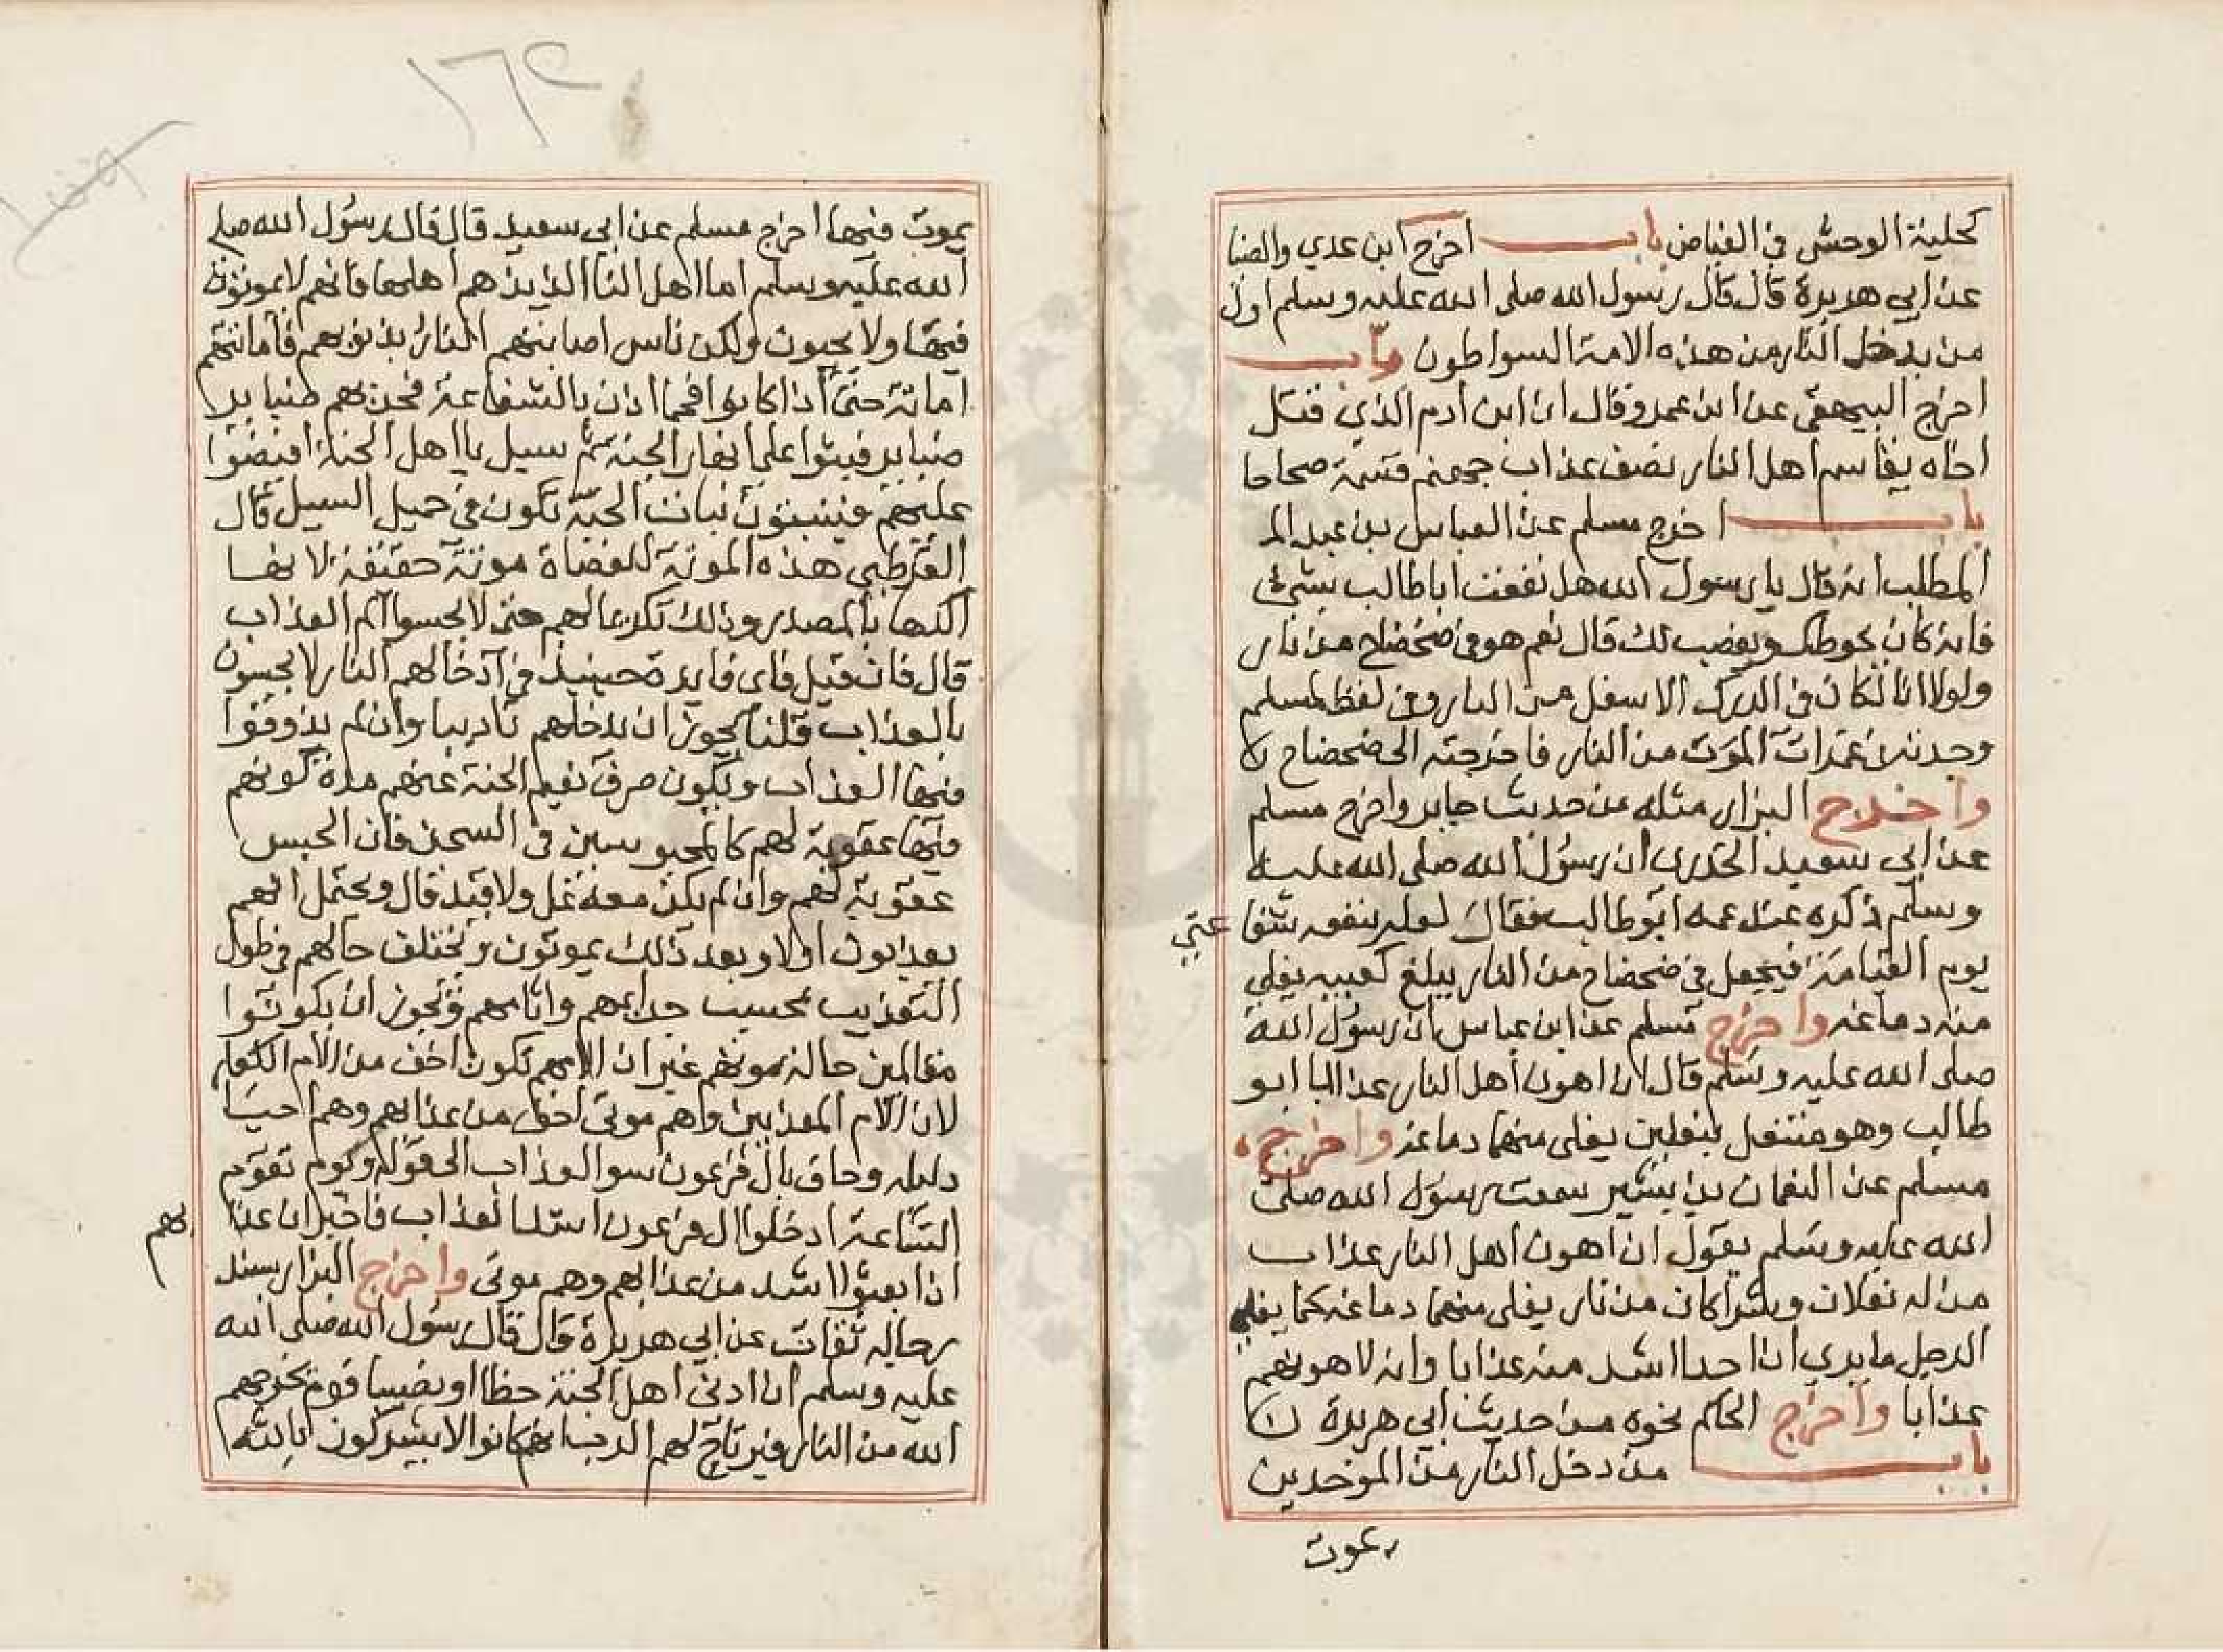 كجلبة الوحش في الغياض باب اخرج ابن عدي والضيا
عن ابي هريرة قال قال رسول الله صلى الله عليه وسلم اول
من يدخل النار من هذه الامة السواطون باب
اخرج البيهقي عن ابن عمرو قال ان ابن ادم الذي قتل
اخاه يقاسم اهل النار نصف عذاب جهنم قسمة صحاحا
باب اخرج مسلم عن العباس بن عبد الم
المطلب انه قال يا رسول الله هل نفعت ابا طالب بشئ
فانه كان يحوطك ويغضب لك قال نعم هو في ضحضاح من نار
ولولا انا لكان في الدرك الاسفل من النار وفي لفظ لمسلم
وجدته في غمرات الموت من النار فاخرجته الى ضحضاح
واخرج البزار مثله من حديث جابر واخرج مسلم
عن ابي سعيد الخدري ان رسول الله صلى الله عليه
وسلم ذكره عند عمه ابو طالب فقال لعله ينفعه شفاعتي
يوم القيامة فيجعل في ضحضاح من النار يبلغ كعبيه يغلي
منه دماغه واخرج مسلم عن ابن عباس ان رسول الله
صلى الله عليه وسلم قال ان اهون اهل النار عذابا ابو
طالب وهو منتعل بنعلين يغلي منهما دماغه واخرج
مسلم عن النعمان بن بشير سمعت رسول الله صلى
الله عليه وسلم يقول ان اهون اهل النار عذاب
من له نعلان وشراكان من نار يغلي منهما دماغه كما يغلي
المرجل ما يري ان احدا اشد منه عذابا وانه لاهونهم
عذابا واخرج الحاكم نحوه من حديث ابي هريرة
باب من دخل النار من الموحدين
يموت
١٦٤
يموت فيها اخرج مسلم عن ابي سعيد قال قال رسول الله صلى
الله عليه وسلم اما اهل النا الذين هم اهلها فانهم لا يموتون
فيها ولا يحيون ولكن ناس اصابتهم النار بذنوبهم فاماتتهم
اماتة حتى اذا كانوا فحما اذن بالشفاعة فجئ بهم ضبابر
ضبابر فبثوا على انهار الجنة ثم سيل يا اهل الجنة افيضوا
عليهم فينبتون نبات الحبة تكون في حميل السيل قال
القرطبي هذه الموتة للعصاة موتة حقيقة لانها
اكدها بالمصدر وذلك تكريما لهم حتى لا يحسوا الم العذاب
قال فان قيل فاى فايدة حينيذ في ادخالهم النار لا يحسون
بالعذاب قلنا يجوز ان يدخلهم تاديبا وان لم يذوقوا
فيها العذاب ويكون صرف نعيم الجنة عنهم مدة كونهم
فيها عقوبة لهم كالمحبوسين في السجن فان الحبس
عقوبة لهم وان لم يكن معه غل ولا قيد قال ويحتمل انهم
يعذبون اولا وبعد ذلك يموتون ويختلف حالهم في طول
التعذيب بحسب جرايمهم واثامهم ويجوز ان يكونوا
متالمين حالة موتهم غير ان الامهم تكون اخف من الام الكفار
لان الام المعذبين واهم موتى اخف من عذابهم وهم احيا
دليله وحاق بال فرعون سوا العذاب الى قوله ويوم تقوم
الساعة ادخلوا ال فرعون اشد العذاب فاخبر ان عذابهم
اذا بعثوا اشد من عذابهم وهم موتى واخرج البزار بسند
رجاله ثقات عن ابي هريرة قال قال رسول الله صلى الله
عليه وسلم ان ادنى اهل الجنة حظا او نصيبا قوم يخرجهم
الله من النار فيرتاح لهم الرب انهم كانوا لا يشركون بالله